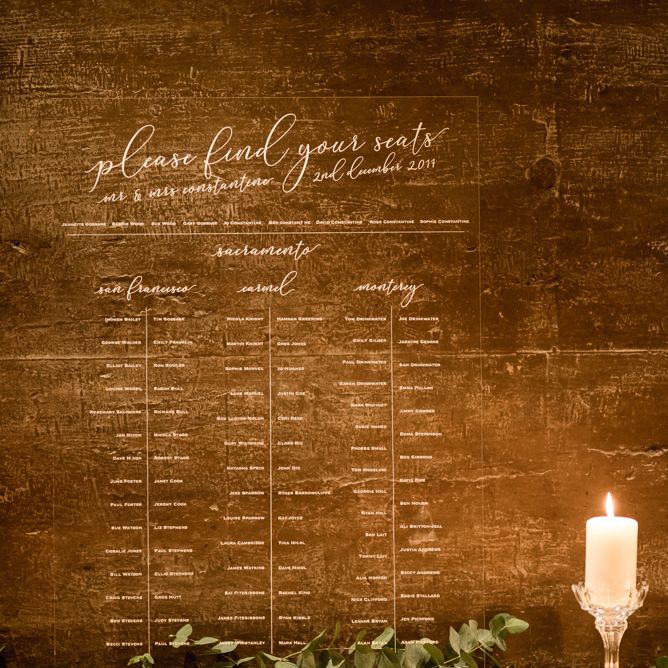 please find your seats
mr & mrs constantine 2nd december 2011
JEANETTE GOSSAGE ROBIN WOOD SUE WOOD GARY GOSSAGE JO CONSTANTINE BEN CONSTANTINE DAVID CONSTANTINE ROSE CONSTANTINE SOPHIE CONSTANTINE
sacramento
san francisco
IMOGEN BAILEY TIM GOSSAGE
GEORGE WALKER EMILY FRANKLIN
ELLIOT BAILEY RON BOWLER
LOUISE WARD SARAH BULL
ROSEMARY SAUNDERS RICHARD BULL
JAN NIXON NICOLA STAGG
DAVE NIXON ROBERT STAGG
JUNE FOSTER JANET COOK
PAUL FOSTER JEREMY COOK
SUE WATSON LIZ STEPHENS
CORALIE JONES PAUL STEPHENS
BILL WATSON ELLIE STEPHENS
CRAIG STEVENS GREG NUTT
BEN STEVENS PAUL STEVENS
BECCI STEVENS
carmel
NICOLA KNIGHT HANNAH GREENING
MARTIN KNIGHT GREG JONES
SOPHIE MANUEL JO HUGHES
LUKE MANUEL JUSTIN COE
SAM LLOYD-NOLAN CERI REES
GARY WILTSHIRE CLARE DIX
NATASHA SPECK JOHN DIX
JAKE SPARROW ROGER BARROWCLIFFE
LOUISE SPARROW KAT JOYCE
LAURA CAMBRIDGE TINA NICOL
JAMES WATKINS DAVE NICOL
SAI FITZGIBBONS RACHEL KING
JAMES FITZGIBBONS RYAN KIBBLE
JERRY WINSTANLEY MARK HALL
monterey
TOM DRINKWATER JOE DRINKWATER
EMILY GILDER JASMINE GEORGE
PAUL DRINKWATER DAN DRINKWATER
KAREN DRINKWATER EMMA PULLON
MARK WHITLEY JIMMY COMBER
SUSIE HANKS EMMA STEVENSON
PHOEBE SMALL BEN GIBBONS
TOM MOSELING KATIE FIRE
GEORGIE HILL BEN HOUGH
RYAN HILL ALI BRITTON-ZEAL
SAM LAIT JUSTIN ANDREWS
TOMMY LAIT BECCY ANDREWS
ALIA HOPPER EDDIE STALLARD
NICK CLIFFORD
LEANNE BRYAN ADAM
ALAN BRYAN